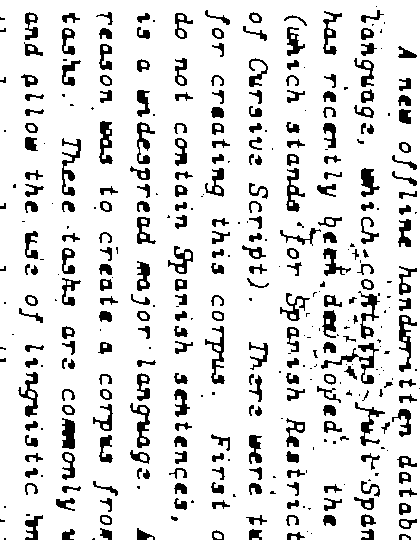 A new offline handwritten databa
language, which contains full Span
has recently been developed: the
(which stands for Spanish Restrict
of Cursive Script). There were tw
for creating this corpus. First o
do not contain Spanish sentences,
is a widespread major language.
reason was to create a corpus from
tasks. These tasks are commonly u
and allow the use of linguistic kn